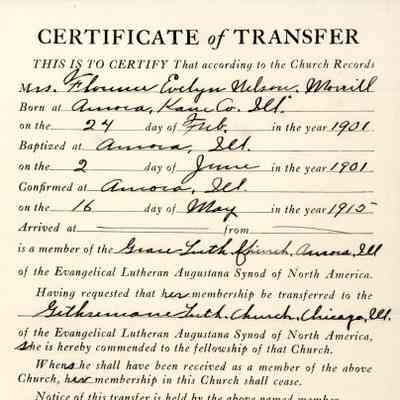 CERTIFICATE of TRANSFER
THIS IS TO CERTIFY That according to the Church Records
Mrs. Florence Evelyn Nelson Morrill
Born at Aurora, Kane Co. Ill.
on the 24 day of Feb. in the year 1901
Baptized at Aurora, Ill.
on the 2 day of June in the year 1901
Confirmed at Aurora, Ill.
on the 16 day of May in the year 1915
Arrived at from
is a member of the Grace Luth. Church, Aurora, Ill
of the Evangelical Lutheran Augustana Synod of North America.
Having requested that her membership be transferred to the
Gethsemane Luth. Church, Chicago, Ill.
of the Evangelical Lutheran Augustana Synod of North America,
she is hereby commended to the fellowship of that Church.
When she shall have been received as a member of the above
Church, her membership in this Church shall cease.
Notice of this transfer is held by the above named member